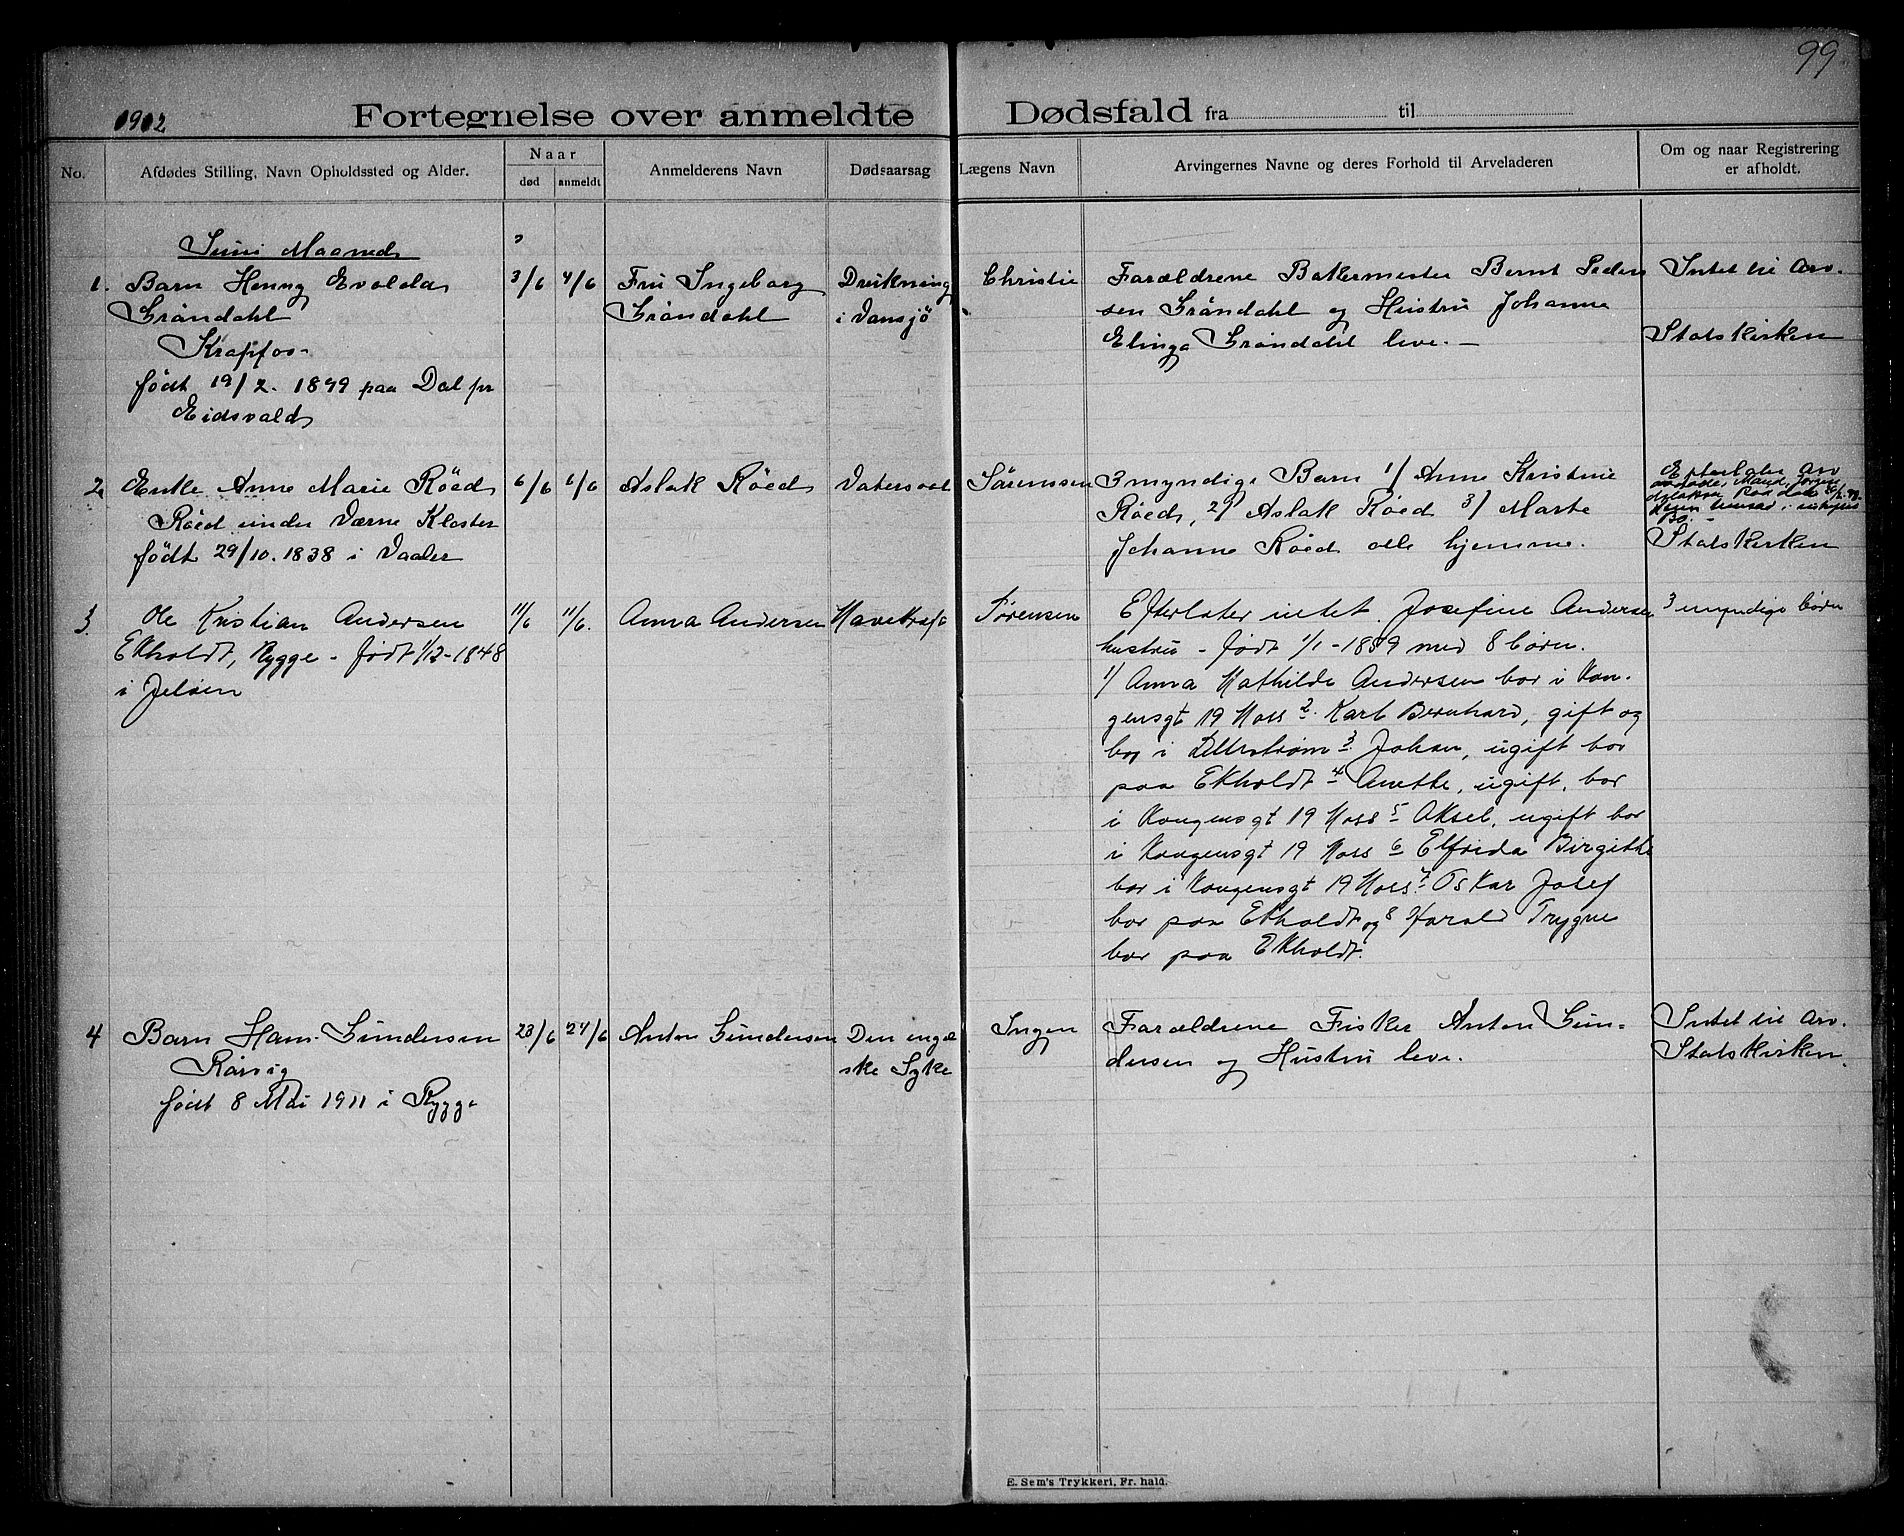 99
1912 Fortegnelse over anmeldte Dødsfald fra til
No. Afdødes Stilling, Navn Opholdssted og Alder. Naar død anmeldt Anmelderens Navn Dødsaarsag Lægens Navn Arvingernes Navne og deres Forhold til Arveladeren Om og naar Registrering er afholdt.
Juni Maaned
1. Barn Henny Evolda 3/6 4/6 Fru Ingeborg Drukning Christie Forældrene Bakermester Bernt Peder Intet til Arv.
Gröndahl Gröndahl i Vansjö sen Gröndahl og Hustru Johanne
Krapfos Elinga Gröndahl leve. — Statskirken
født 19/2. 1899 paa Dal pr
Eidsvold
2 Enke Anne Marie Röed 6/6 6/6 Aslak Röed Vatersoot Sörenssen 3 myndige Barn 1/ Anne Kristine Efterlater Arv
Röed under Værne Kloster Röed, 2/ Aslak Röed 3/ Marte
født 29/10. 1838 i Vaaler Johanne Röed alle hjemme. Statskirken
3. Ole Kristian Andersen 11/6 11/6. Anna Andersen Mavekræft Sørensen Efterlater intet. Josefine Andersen 3 myndige børn
Ekholdt, Rygge - født 1/12-1848 hustru - født 1/1-1859 med 8 børn.
i Jeløen 1/ Anna Mathilde Andersen bor i Kon-
gensgt 19 Moss 2 Karl Bernhard, gift og
bor i 3 Johan, ugift bor
paa Ekholdt 4 Anette, ugift, bor
i Kongensgt 19 Moss 5 Aksel, ugift bor
i Kongensgt 19 Moss 6 Elfrida Birgitte
bor i Kongensgt 19 Moss 7 Oskar Josef
bor paa Ekholdt og 8 Harald Trygve
bor paa Ekholdt.
4 Barn Hans Gundersen 23/6 24/6 Anton Gundersen Den engel Ingen Forældrene Fisker Anton Gun- Intet til Arv.
Rörvig ske Syke dersen og Hustru leve. Statskirken
født 8 Mai 1911 i Rygge
E. Sem's Trykkeri, Fr.hald.